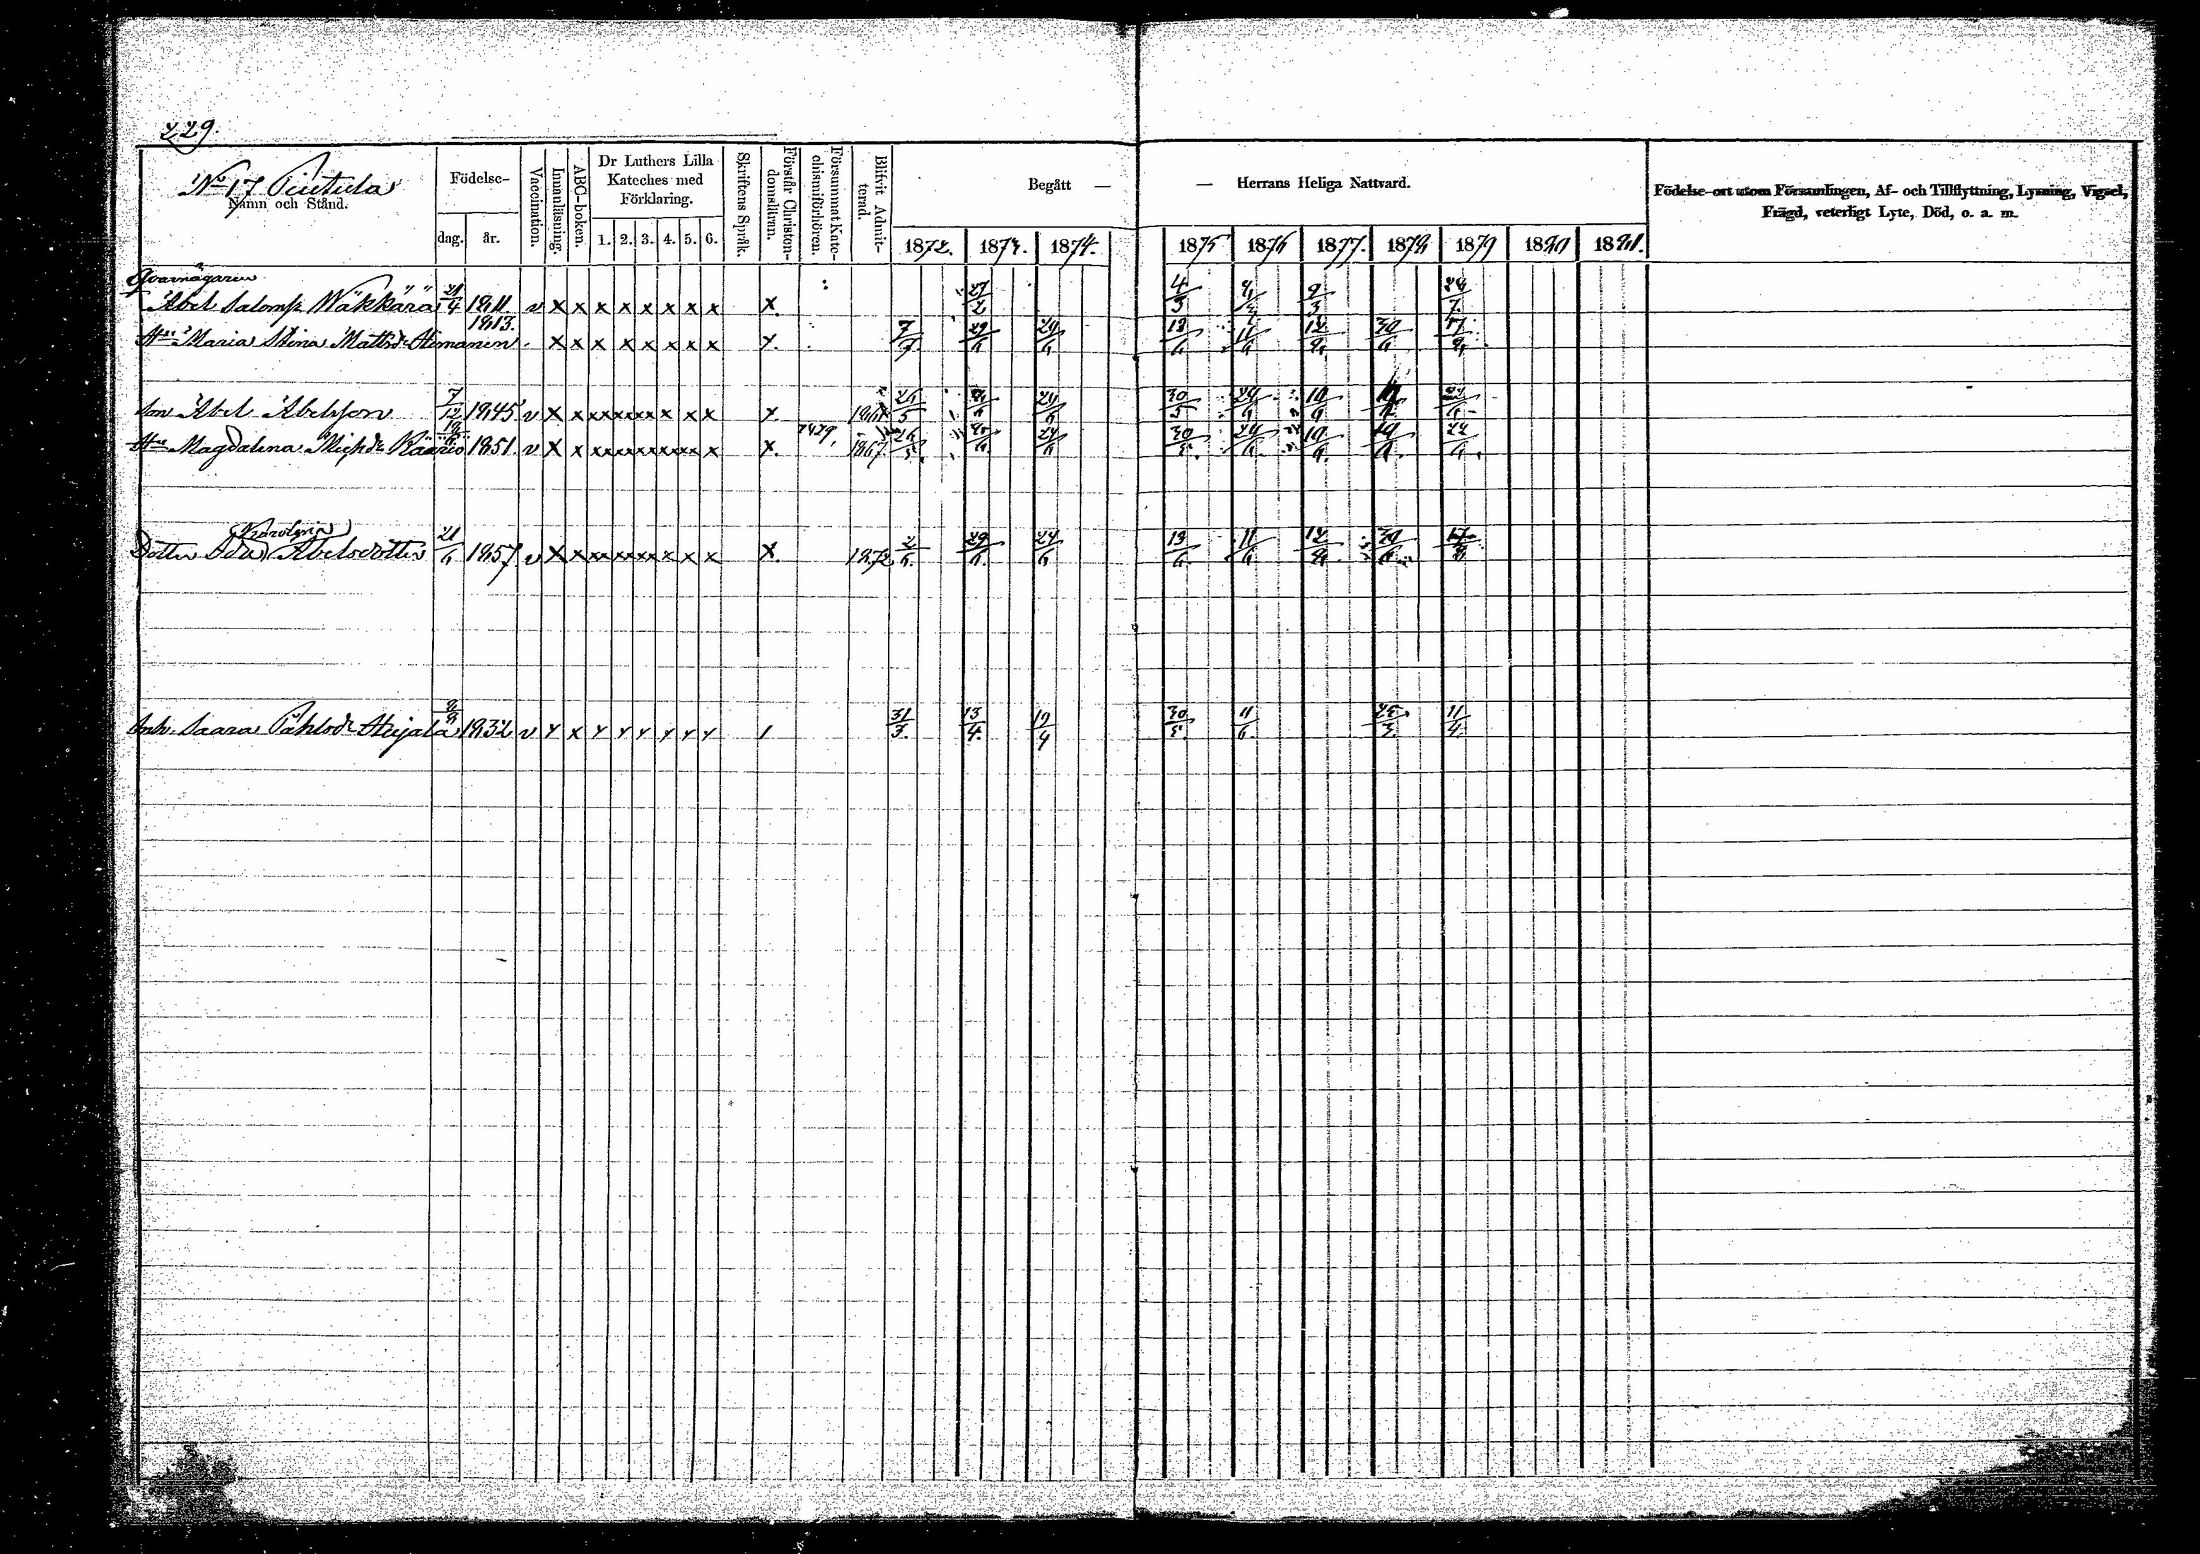 229.
No 17 Piutula
Namn och Stånd.
Födelse-
dag. år.
Vaccination.
Innanläsning.
ABC-boken.
Dr Luthers Lilla
Kateches med
Förklaring.
1. 2. 3. 4. 5. 6.
Skriftens Språk.
Förstår Christen-
domsläran.
Försummat Kate-
chismiförhören.
Blifvit Admit-
terad.
Begått —
— Herrans Heliga Nattvard.
1872. 1873. 1874. 1875 1876 1877. 1878 1879 1880 1881.
Födelse-ort utom Församlingen, Af- och Tillflyttning, Lysning, Vigsel,
Frägd, veterligt Lyte, Död, o. a. m.
Qvarnägaren
Abel Salomsp Wäkkärä 21/4 1811. v x x x x x x x x x. 27/2 4/3 9/3 24/7.
1813.
Hu Maria Stina Mattsdr Himanen x x x x x x x x x. 29/6 24/6 13/6 11/6 12/8 30/6 17/8
Son Abel Abelsson 7/12 1845 v x x xx xx xx x x x x. 26/5 24/6 30/5 24/6 10/6 22/6
Hu Magdalena Michdr Kääriö 1851. v x x x. 1867. 26/5. 24/6 30/5. 24/6. 10/6. 22/6.
Karolina
Dotter Ida Abelsdotter 21/6 1857 v x x xx xx xx x x x x. 1872 2/6. 29/6. 24/6 13/6. 11/6 12/8. 30/6 17/8
Inh. Saara Påhlsdr Hujala 8/8 1832 v x x x x x x x x 31/3. 13/4. 19/4 30/5. 11/6. 25/3. 11/4.